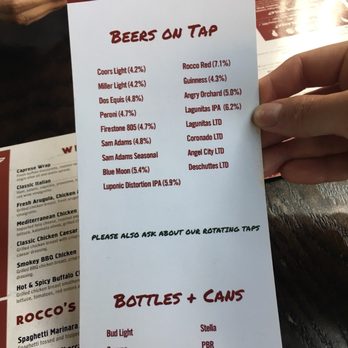 BEERS ON TAP
Coors Light (4.2%)
Miller Light (4.2%)
Dos Equis (4.8%)
Peroni (4.7%)
Firestone 805 (4.7%)
Sam Adams (4.8%)
Sam Adams Seasonal
Blue Moon (5.4%)
Luponic Distortion IPA (5.9%)
Rocco Red (7.1%)
Guinness (4.3%)
Angry Orchard (5.0%)
Lagunitas IPA (6.2%)
Lagunitas LTD
Coronado LTD
Angel City LTD
Deschuttes LTD
PLEASE ALSO ASK ABOUT OUR ROTATING TAPS
BOTTLES + CANS
Bud Light
Stella
PBR
Caprese Wrap
Classic Italian
Fresh Arugula, Chicken
Mediterranean Chicken
Classic Chicken Caesar
Smokey BBQ Chicken
Hot & Spicy Buffalo C
ROCCO'S
Spaghetti Marinara